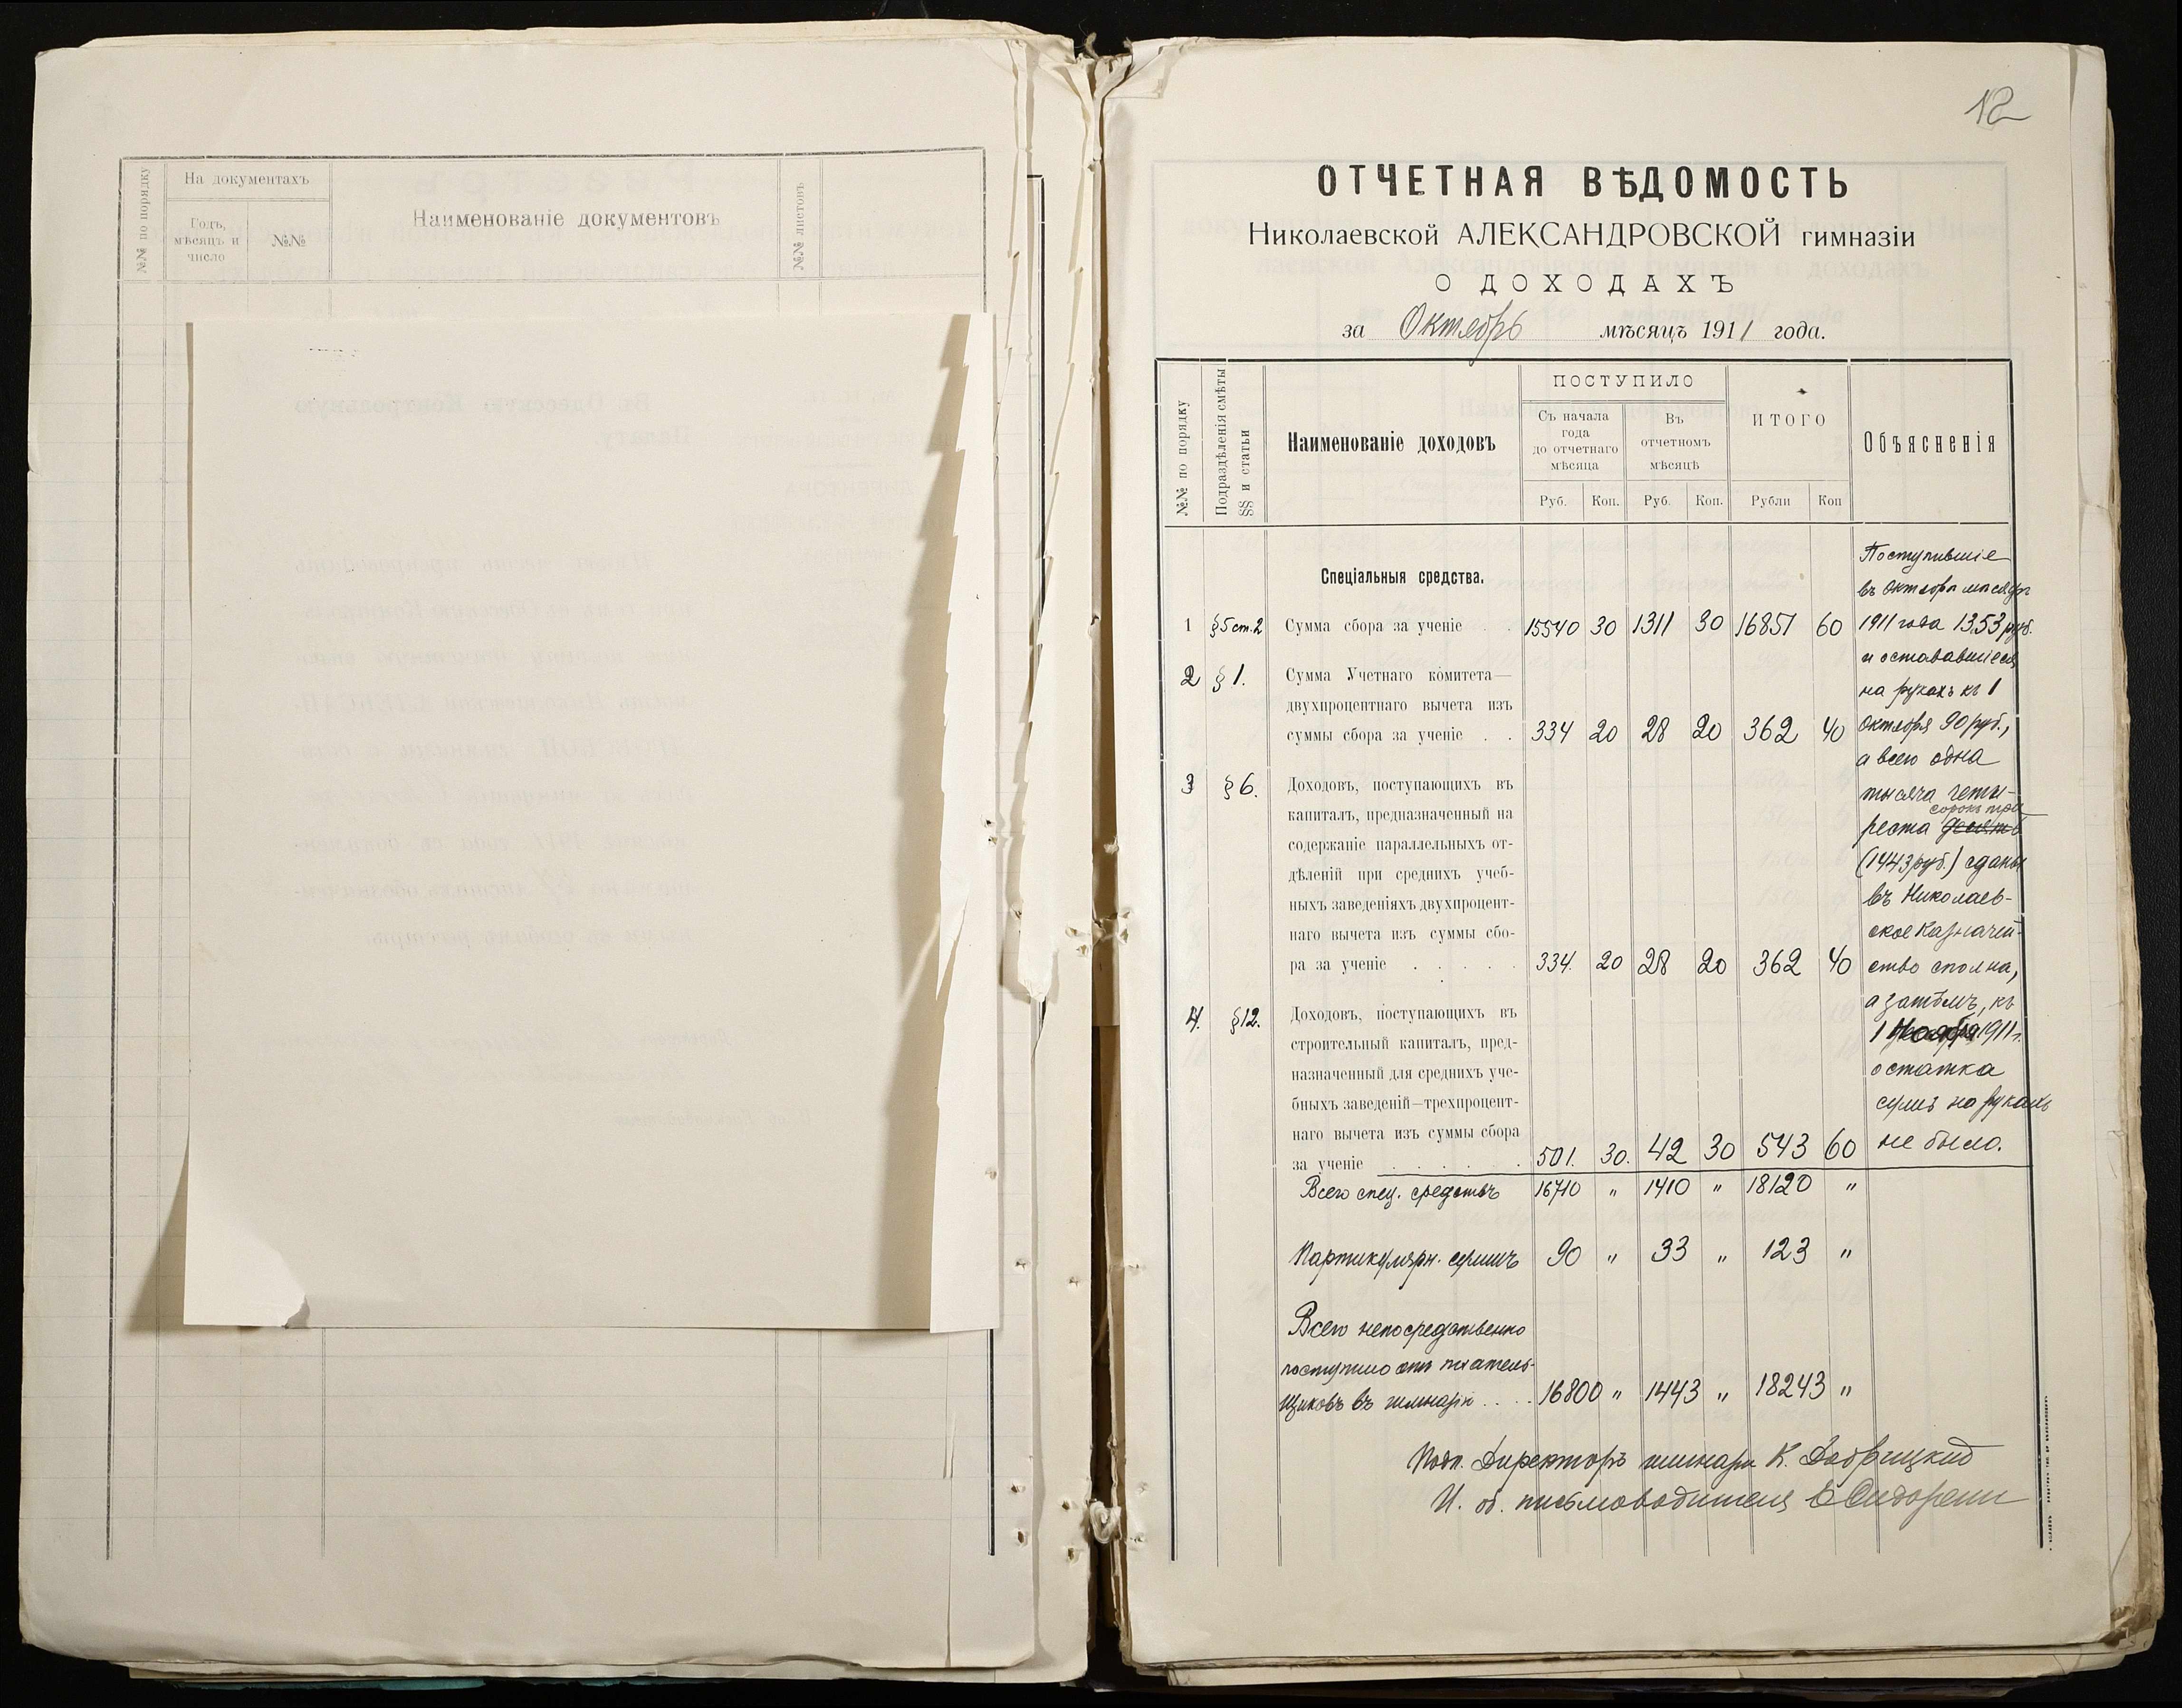 №№ по порядку
На документахъ
Годъ,
мѣсяцъ и
число
№№
Наименованіе документовъ
№№ листовъ
12
ОТЧЕТНАЯ ВѢДОМОСТЬ
Николаевской АЛЕКСАНДРОВСКОЙ гимназіи
О ДОХОДАХЪ
за Октябрь мѣсяцъ 1911 года.
№№ по порядку
Подраздѣленія смѣты
§§ и статьи
Наименованіе доходовъ
ПОСТУПИЛО
Съ начала
года
до отчетнаго
мѣсяца
Въ
отчетномъ
мѣсяцѣ
ИТОГО
Объясненія
Руб. Коп. Руб. Коп. Рубли Коп
Спеціальныя средства.
1 §5 ст.2 Сумма сбора за ученіе . . 15540 30 1311 30 16851 60
2 §1. Сумма Учетнаго комитета—
двухпроцентнаго вычета изъ
суммы сбора за ученіе . . 334 20 28 20 362 40
3 §6. Доходовъ, поступающихъ въ
капиталъ, предназначенный на
содержаніе параллельныхъ от-
дѣленій при среднихъ учеб-
ныхъ заведеніяхъ двухпроцент-
наго вычета изъ суммы сбо-
ра за ученіе . . . . . 334. 20 28 20 362 40
4. §12. Доходовъ, поступающихъ въ
строительный капиталъ, пред-
назначенный для среднихъ уче-
бныхъ заведеній—трехпроцент-
наго вычета изъ суммы сбора
за ученіе . . . . . 501. 30. 42 30 543 60
Всего спец. средствъ 16710 " 1410 " 18120 "
Партикулярн. суммъ 90 " 33 " 123 "
Всего непосредственно
поступило отъ платель-
щиковъ въ гимназію . . . . 16800 " 1443 " 18243 "
Поступившіе
въ Октябрѣ мѣсяцѣ
1911 года 1353 руб.
и остававшіеся
на рукахъ къ 1
Октября 90 руб.,
а всего одна
тысяча четы-
сорокъ три
реста десять
(1443 руб.) сданы
въ Николаев-
ское Казначей-
ство сполна,
а затѣмъ, къ
1 Ноября 1911 г.
остатка
суммъ на рукахъ
не было.
Подп. Директоръ гимназіи К.
И. об. письмоводителя